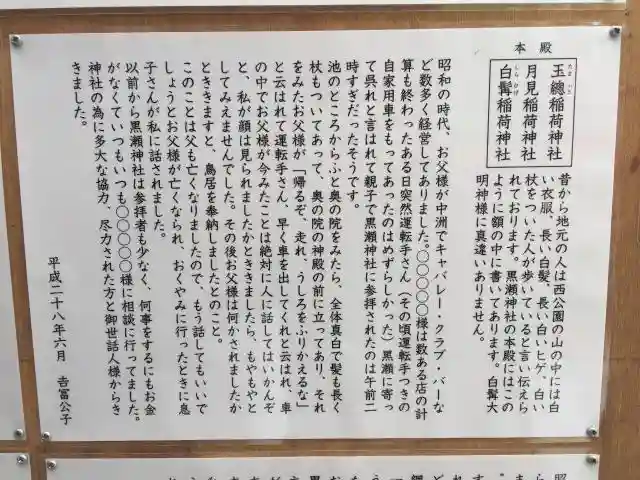 本殿
玉繦稲荷神社
月見稲荷神社
白髯稲荷神社
昔から地元の人は西公園の山の中には白
い衣服、長い白髪、長い白いヒゲ、白い
杖をついた人が歩いていると言い伝えら
れております。黒瀬神社の本殿にはこの
ように額の中に書いてあります。白髯大
明神様に真違いありません。
昭和の時代、お父様が中洲でキャバレー・クラブ・バーな
ど数多く経営してありました。〇〇〇〇様は数ある店の計
算も終わったある日突然運転手さん（その頃運転手つきの
自家用車をもってあったのはめずらしかった）黒瀬に寄っ
て呉れと言はれて親子で黒瀬神社に参拝されたのは午前二
時すぎだったそうです。
池のところからふと奥の院をみたら、全体真白で髪も長く
杖もついてあって、奥の院の神殿の前に立ってあり、それ
をみたお父様が「帰るぞ、走れ、うしろをふりかえるな」
と云はれて運転手さん、早く車を出してくれと云はれ、車
の中でお父様が今みたことは絶対に人に話してはいかんぞ
と、私が顔は見られましたかとききましたら、もやもやと
してみえませんでした。その後お父様は何かされましたか
とききますと、鳥居を奉納しましたとのこと。
このことは父も亡くなりましたので、もう話してもいいで
しょうとお父様が亡くなられ、おくやみに行ったときに息
子さんが私に話されました。
以前から黒瀬神社は参拝者も少なく、何事をするにもお金
がなくていつもいつも〇〇〇〇様に相談に行ってました。
神社の為に多大な協力、尽力された方と御世話人様からき
きました。
平成二十八年六月　吉冨公子